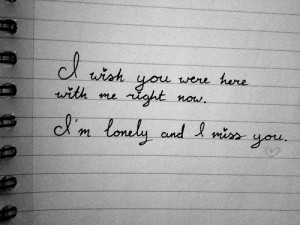 I wish you were here
with me right now.
I'm lonely and I miss you.